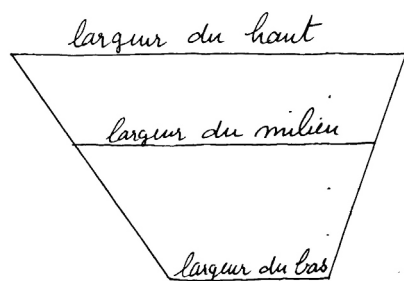 largeur du haut
largeur du milieu
largeur du bas